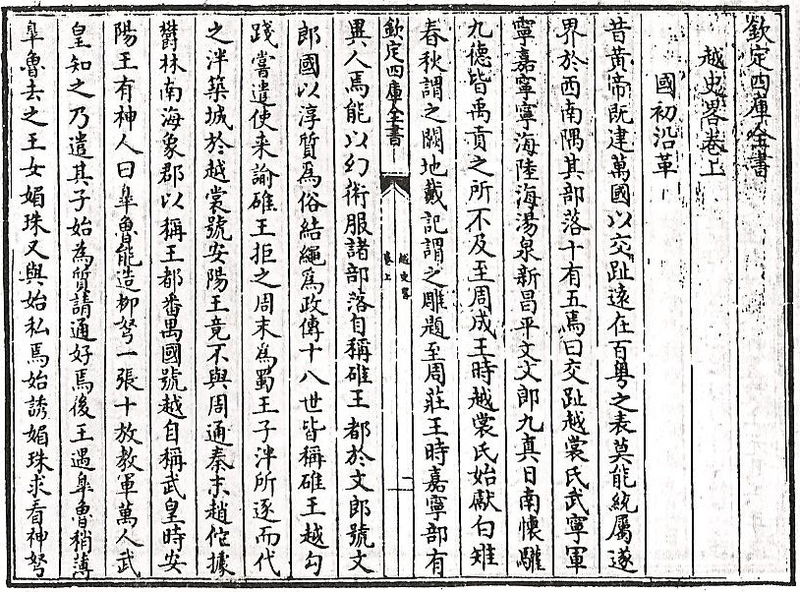 欽定四庫全書
越史畧卷上
國初沿革
昔黃帝既建萬國以交趾遠在百粤之表莫能統屬遂
界於西南隅其部落十有五焉曰交趾越裳氏武寧軍
寧嘉寧寧海陸海湯泉新昌平文文郎九真日南懷驩
九德皆禹貢之所不及至周成王時越裳氏始獻白雉
春秋謂之闕地戴記謂之雕題至周莊王時嘉寧部有
欽定四庫全書
越史畧
卷上
一
異人焉能以幻術服諸部落自稱碓王都於文郎號文
郎國以淳質爲俗結繩爲政傳十八世皆稱碓王越勾
踐嘗遣使来諭碓王拒之周末爲蜀王子泮所逐而代
之泮築城於越裳號安陽王竟不與周通秦末趙佗據
欝林南海象郡以稱王都番禺國號越自稱武皇時安
陽王有神人曰臯魯能造柳弩一張十放教軍萬人武
皇知之乃遣其子始為質請通好焉後王遇臯魯稍薄
臯魯去之王女媚珠又與始私焉始誘媚珠求看神弩